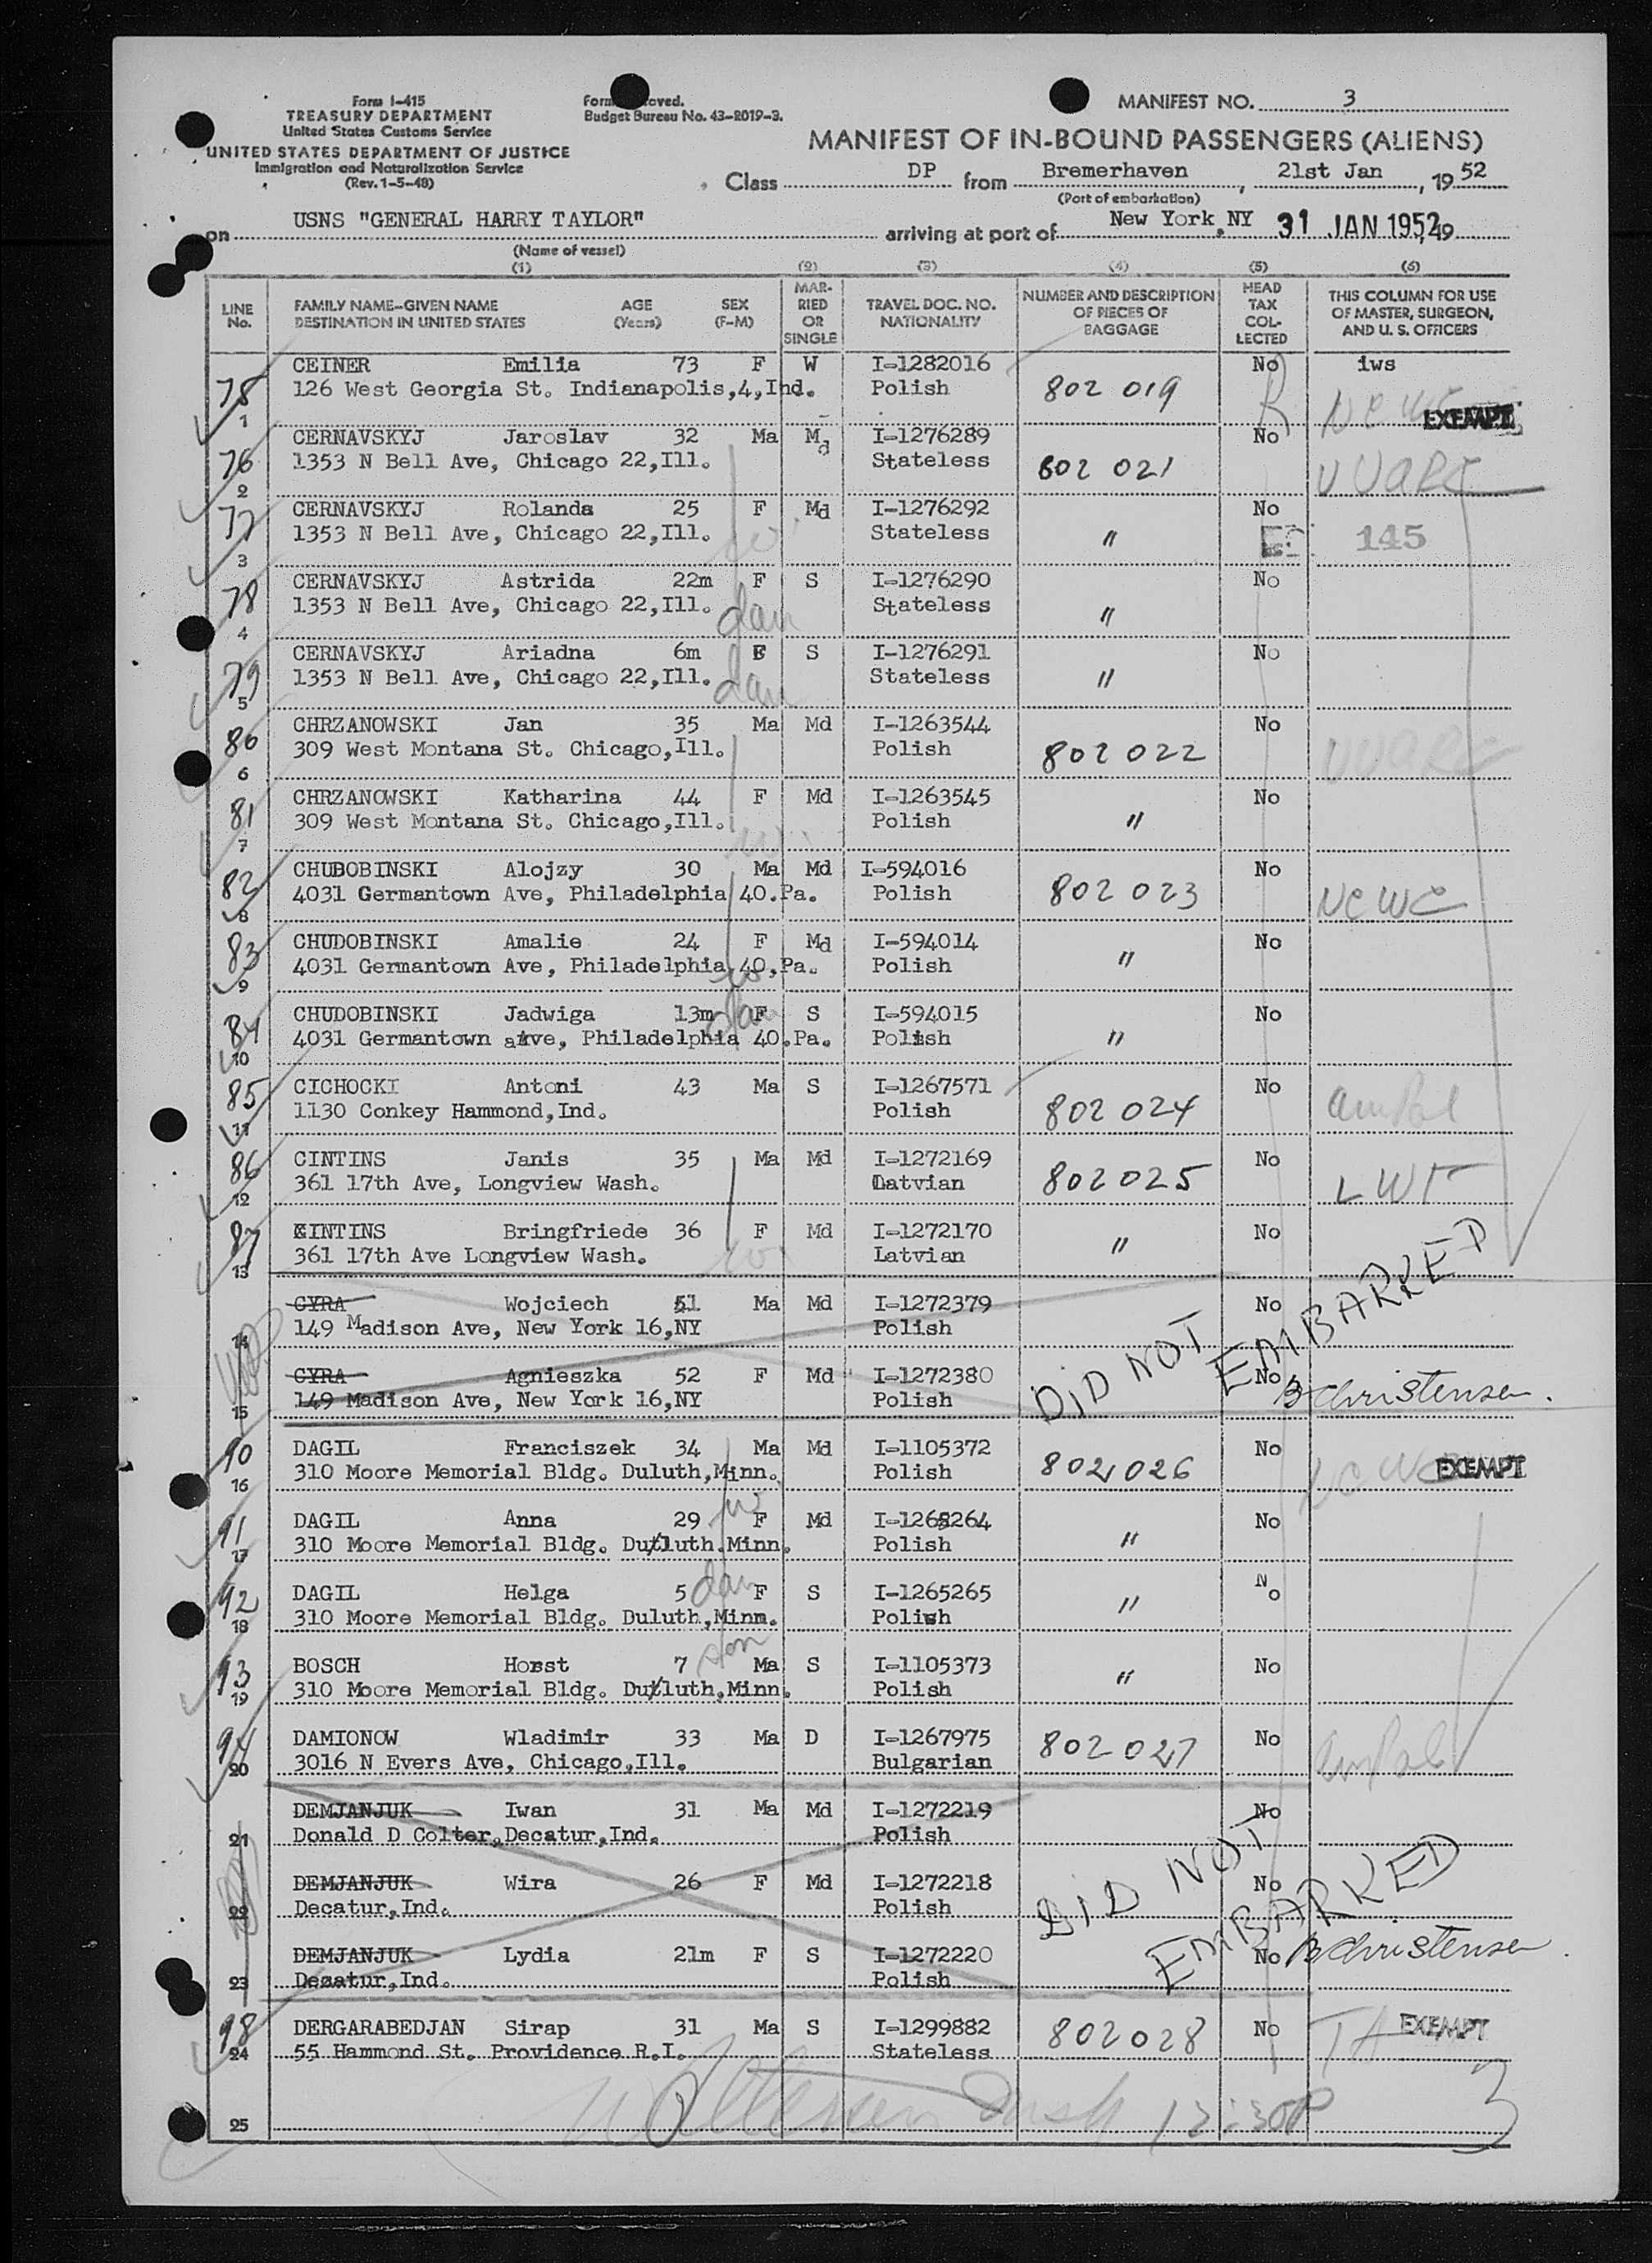 Form I-415
TREASURY DEPARTMENT
United States Customs Service
UNITED STATES DEPARTMENT OF JUSTICE
Immigration and Naturalization Service
(Rev. 1-5-48)
Budget Bureau No. 43-R019-3.
MANIFEST NO. 3
MANIFEST OF IN-BOUND PASSENGERS (ALIENS)
Class DP from Bremerhaven, 21st Jan, 19 52
(Port of embarkation)
on USNS "GENERAL HARRY TAYLOR" arriving at port of New York, NY 31 JAN 1952, 19
(Name of vessel)
(1) (2) (3) (4) (5) (6)
LINE No. FAMILY NAME-GIVEN NAME DESTINATION IN UNITED STATES AGE (Years) SEX (F-M) MARRIED OR SINGLE TRAVEL DOC. NO. NATIONALITY NUMBER AND DESCRIPTION OF PIECES OF BAGGAGE HEAD TAX COLLECTED THIS COLUMN FOR USE OF MASTER, SURGEON, AND U. S. OFFICERS
CEINER Emilia 73 F W I-1282016 No iws
75 126 West Georgia St. Indianapolis,4,Ind. Polish 802 019 NCWC EXEMPT
1
CERNAVSKYJ Jaroslav 32 Ma Md I-1276289 No
76 1353 N Bell Ave, Chicago 22,Ill. Stateless 802 021 UUARC
2
CERNAVSKYJ Rolanda 25 F Md I-1276292 No
77 1353 N Bell Ave, Chicago 22,Ill. w. Stateless " 145
3
CERNAVSKYJ Astrida 22m F S I-1276290 No
78 1353 N Bell Ave, Chicago 22,Ill. dau Stateless "
4
CERNAVSKYJ Ariadna 6m F S I-1276291 No
79 1353 N Bell Ave, Chicago 22,Ill. dau Stateless "
5
CHRZANOWSKI Jan 35 Ma Md I-1263544 No
80 309 West Montana St. Chicago,Ill. Polish 802 022 UUARC
6
CHRZANOWSKI Katharina 44 F Md I-1263545 No
81 309 West Montana St. Chicago,Ill. w. Polish "
7
CHUBOBINSKI Alojzy 30 Ma Md I-594016 No
82 4031 Germantown Ave, Philadelphia 40.Pa. Polish 802 023 NCWC
8
CHUDOBINSKI Amalie 24 F Md I-594014 No
83 4031 Germantown Ave, Philadelphia,40,Pa. w. Polish "
9
CHUDOBINSKI Jadwiga 13m F S I-594015 No
84 4031 Germantown ave, Philadelphia 40.Pa. dau Polish "
10
CICHOCKI Antoni 43 Ma S I-1267571 No
85 1130 Conkey Hammond,Ind. Polish 802 024 AmPol
11
CINTINS Janis 35 Ma Md I-1272169 No
86 361 17th Ave, Longview Wash. Latvian 802 025 LWF
12
CINTINS Bringfriede 36 F Md I-1272170 No
87 361 17th Ave Longview Wash. w. Latvian "
13
CYRA Wojciech 51 Ma Md I-1272379 No
149 Madison Ave, New York 16,NY Polish
14
CYRA Agnieszka 52 F Md I-1272380 No
149 Madison Ave, New York 16,NY Polish DID NOT EMBARKED B Christensen.
15
DAGIL Franciszek 34 Ma Md I-1105372 No
90 310 Moore Memorial Bldg. Duluth,Minn. Polish 802 026 NCWC EXEMPT
16
DAGIL Anna 29 w. F Md I-1265264 No
91 310 Moore Memorial Bldg. Duluth.Minn. Polish "
17
DAGIL Helga 5 dau F S I-1265265 No
92 310 Moore Memorial Bldg. Duluth,Minn. Polish "
18
BOSCH Horst 7 son Ma S I-1105373 No
93 310 Moore Memorial Bldg. Duluth,Minn. Polish "
19
DAMIONOW Wladimir 33 Ma D I-1267975 No
94 3016 N Evers Ave, Chicago,Ill. Bulgarian 802 027 AmPol
20
DEMJANJUK Iwan 31 Ma Md I-1272219 No
Donald D Colter,Decatur,Ind. Polish
21
DEMJANJUK Wira 26 F Md I-1272218 No
Decatur,Ind. Polish DID NOT EMBARKED
22
DEMJANJUK Lydia 21m F S I-1272220 No B Christensen.
Decatur,Ind. Polish
23
DERGARABEDJAN Sirap 31 Ma S I-1299882 No
98 55 Hammond St. Providence R.I. Stateless 802 028 EXEMPT
24
12:30P 3
25